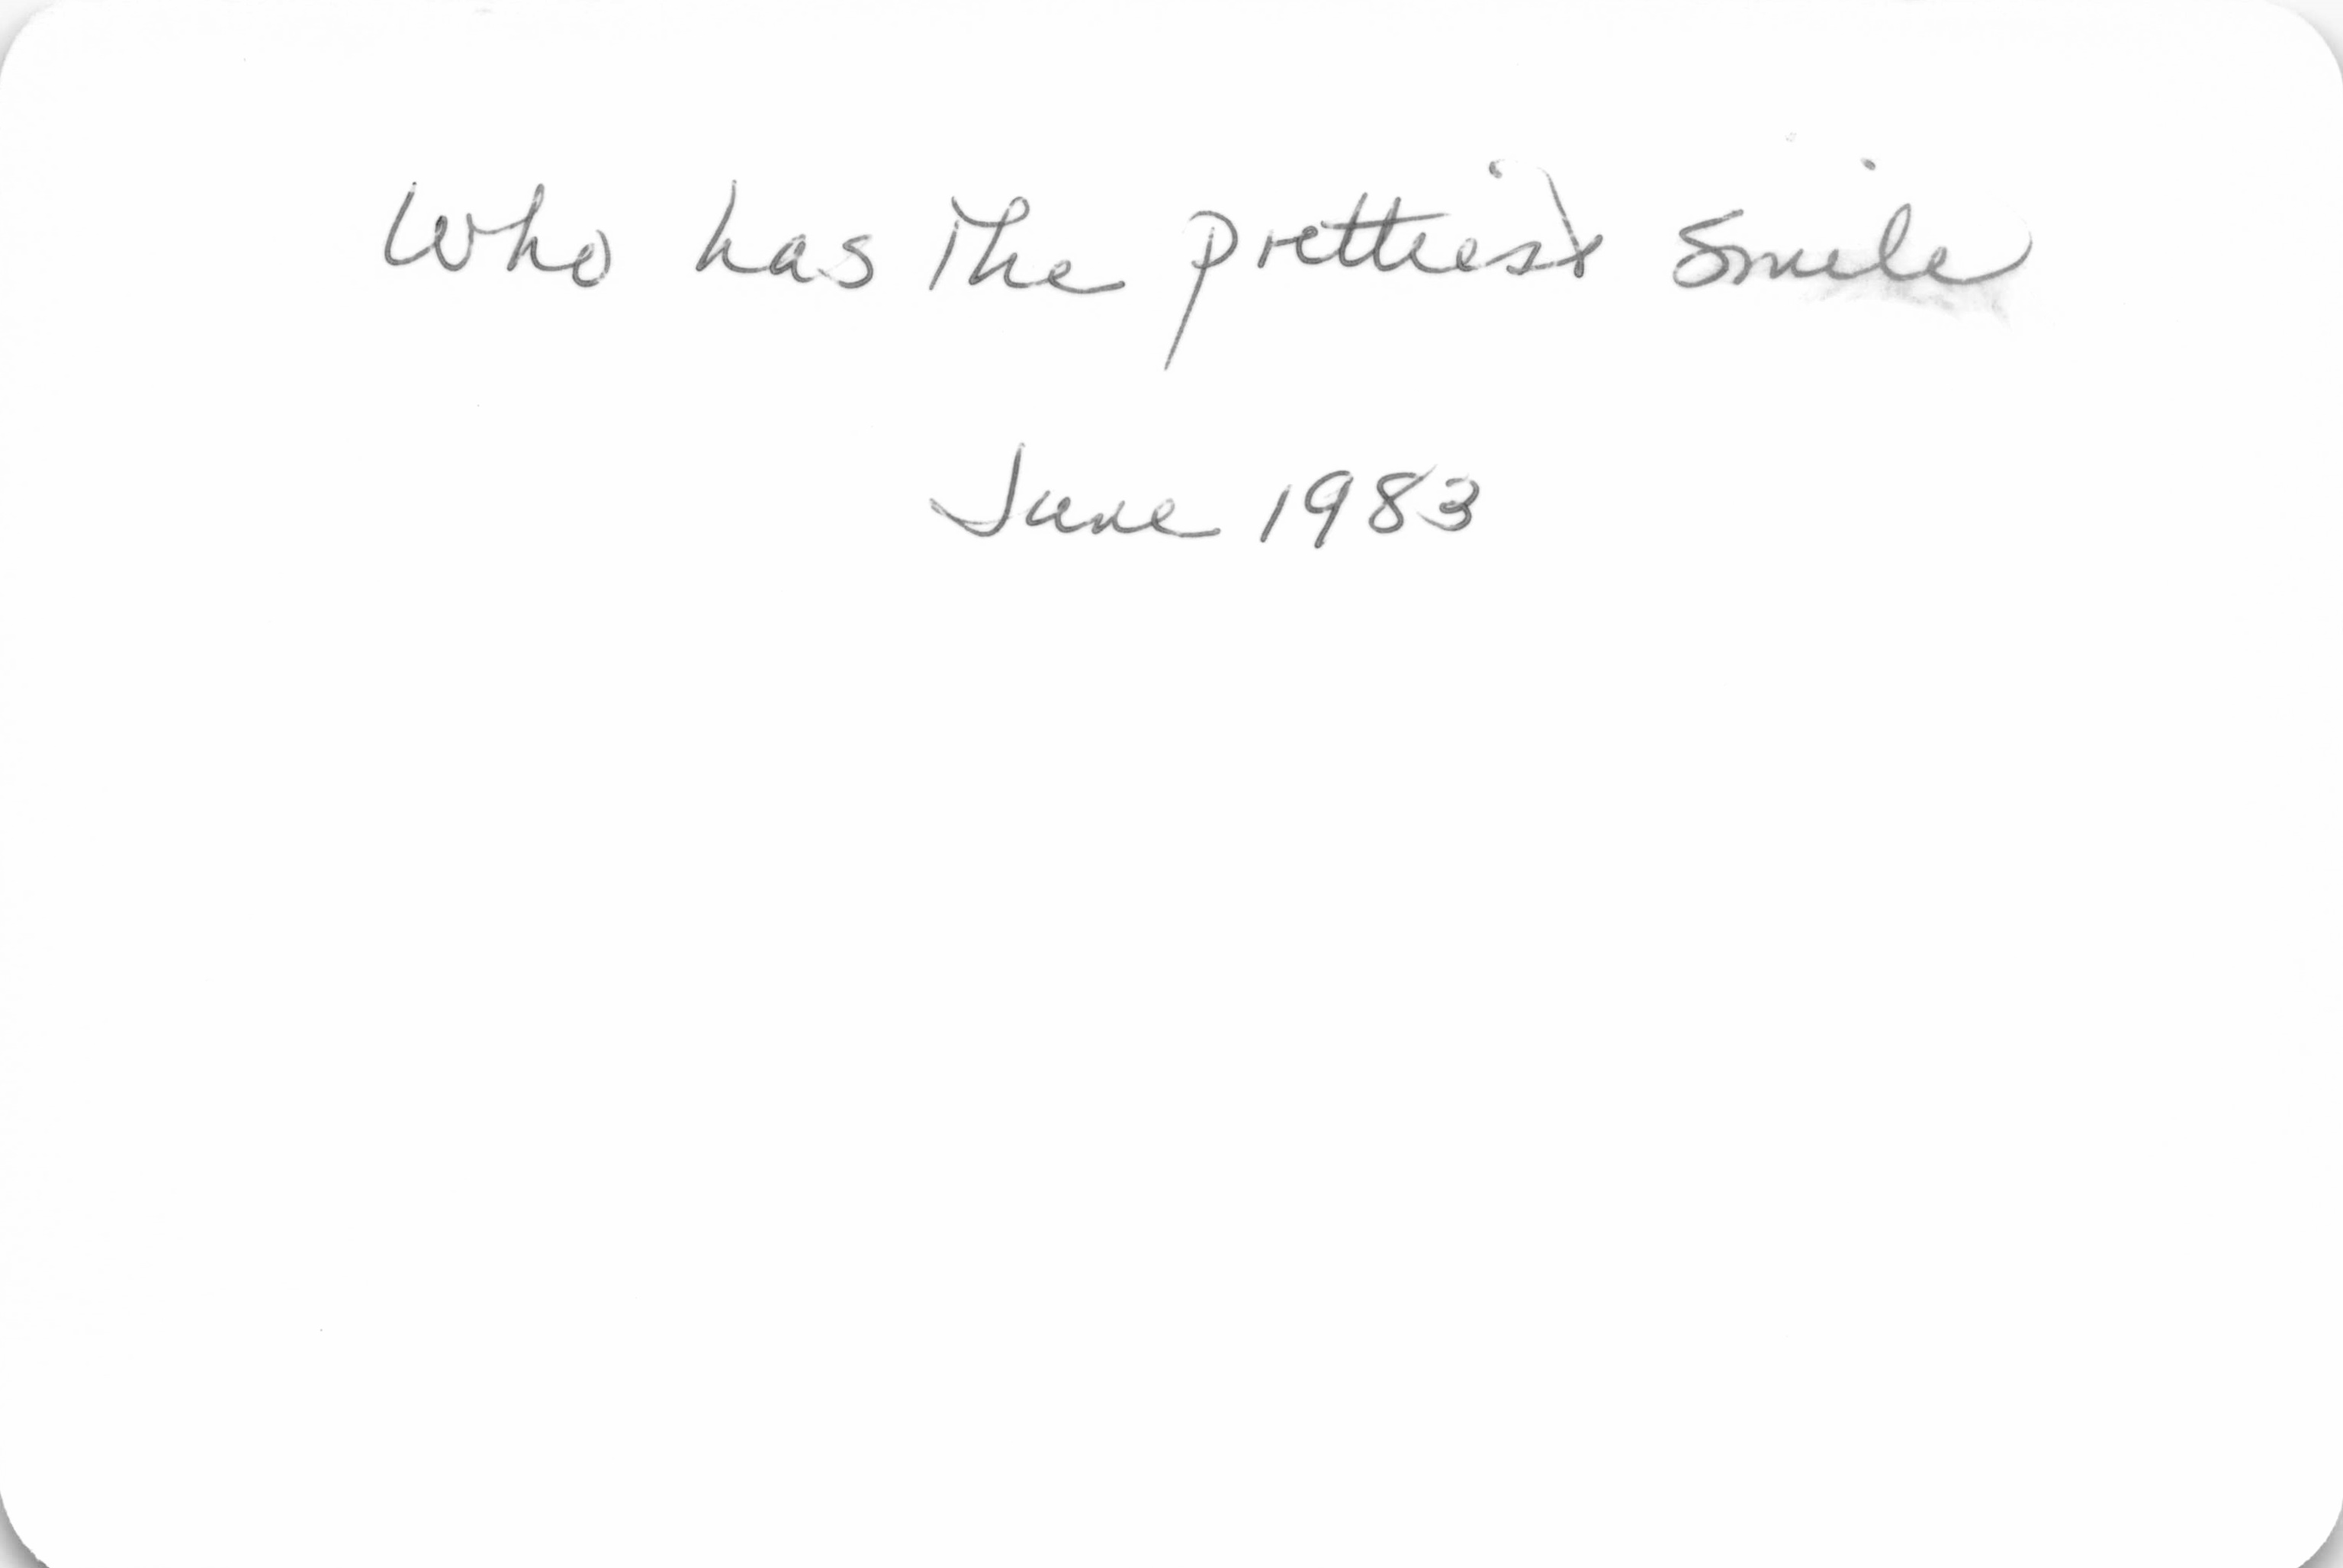 Who has the prettiest smile
June 1983